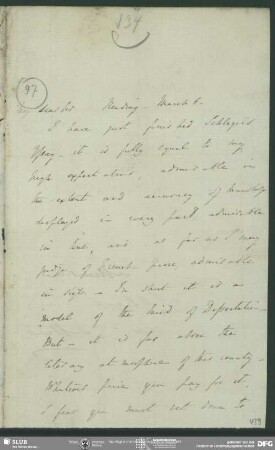 134
97
My dear Sir Reading - March 8.
I have just finished Schlegel's
Essay - it is fully equal to my
high expectations, admirable in
the extent and accuracy of knowledge
displayed in every part admirable
in tone, and as far as I may
judge of French prose, admirable
in style - In short it is a
model of this kind of Dissertation -
But - it is far above the
literary atmosphere of this country -
Whatever price you pay for it,
I fear you must set down to
479
SLUB
Wir führen Wissen.